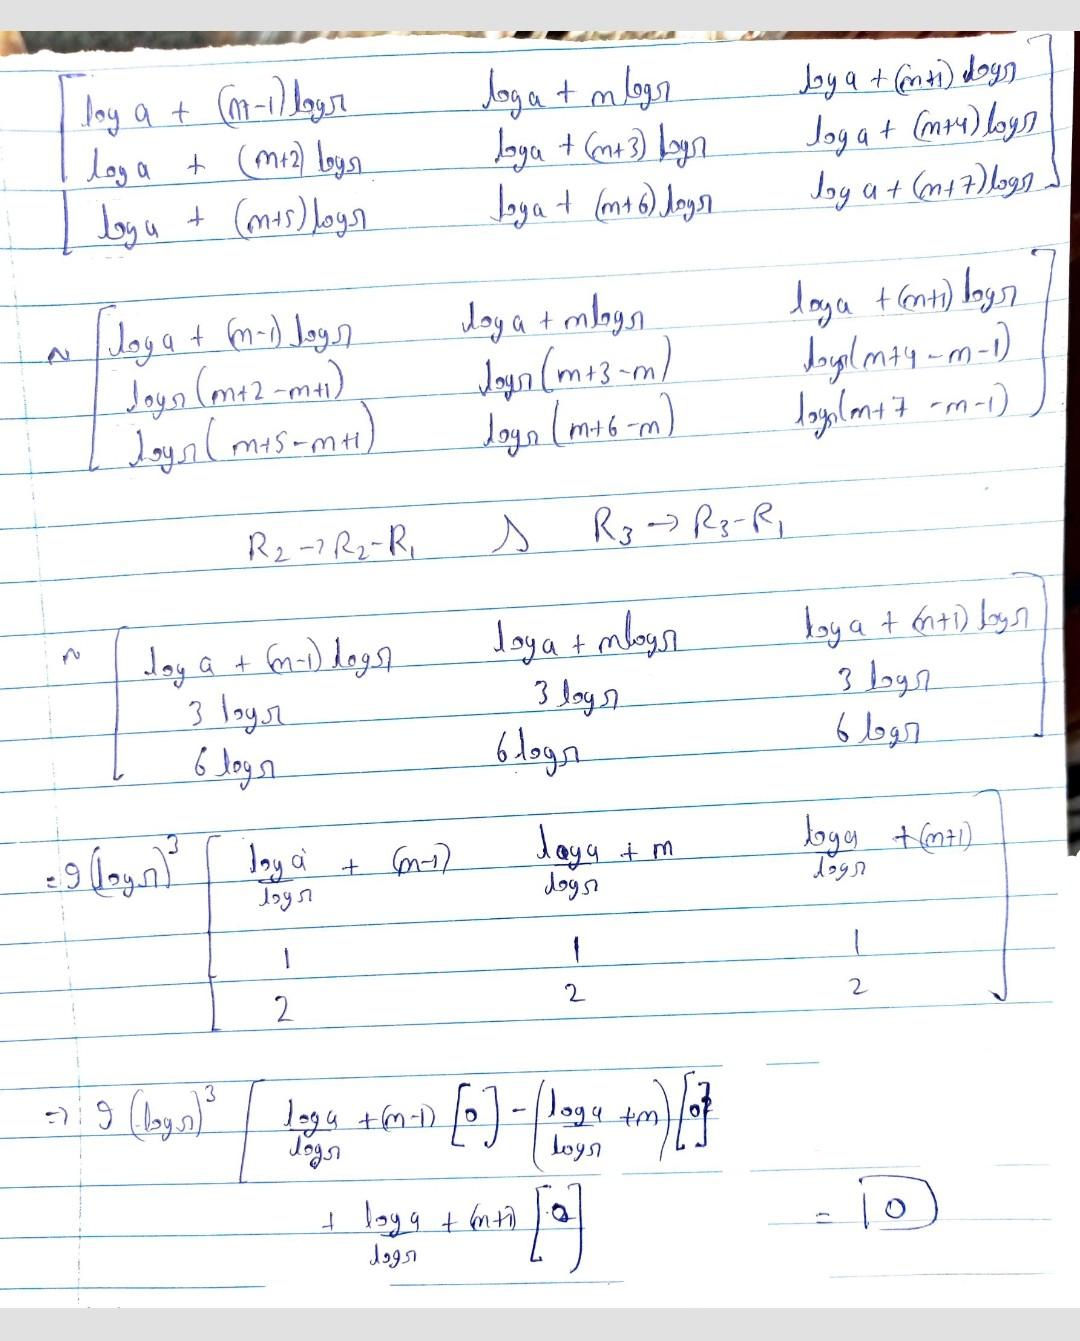 log a + (m-1) log r    log a + m log r    log a + (m+1) log r
log a + (m+2) log r    log a + (m+3) log r    log a + (m+4) log r
log a + (m+5) log r    log a + (m+6) log r    log a + (m+7) log r
~ log a + (m-1) log r    log a + m log r    log a + (m+1) log r
log r (m+2-m+1)    log r (m+3-m)    log r (m+4-m-1)
log r (m+5-m+1)    log r (m+6-m)    log r (m+7-m-1)
R₂ → R₂-R₁    R₃ → R₃-R₁
~ log a + (m-1) log r    log a + m log r    log a + (m+1) log r
3 log r    3 log r    3 log r
6 log r    6 log r    6 log r
= 9 (log r)³ [ log a/log r + (m-1)    log a/log r + m    log a/log r + (m+1)
1    1    1
2    2    2 ]
⇒ 9 (log r)³ [ log a/log r + (m-1) [0] - (log a/log r + m) [0]
+ log a/log r + (m+1) [0]    = 0